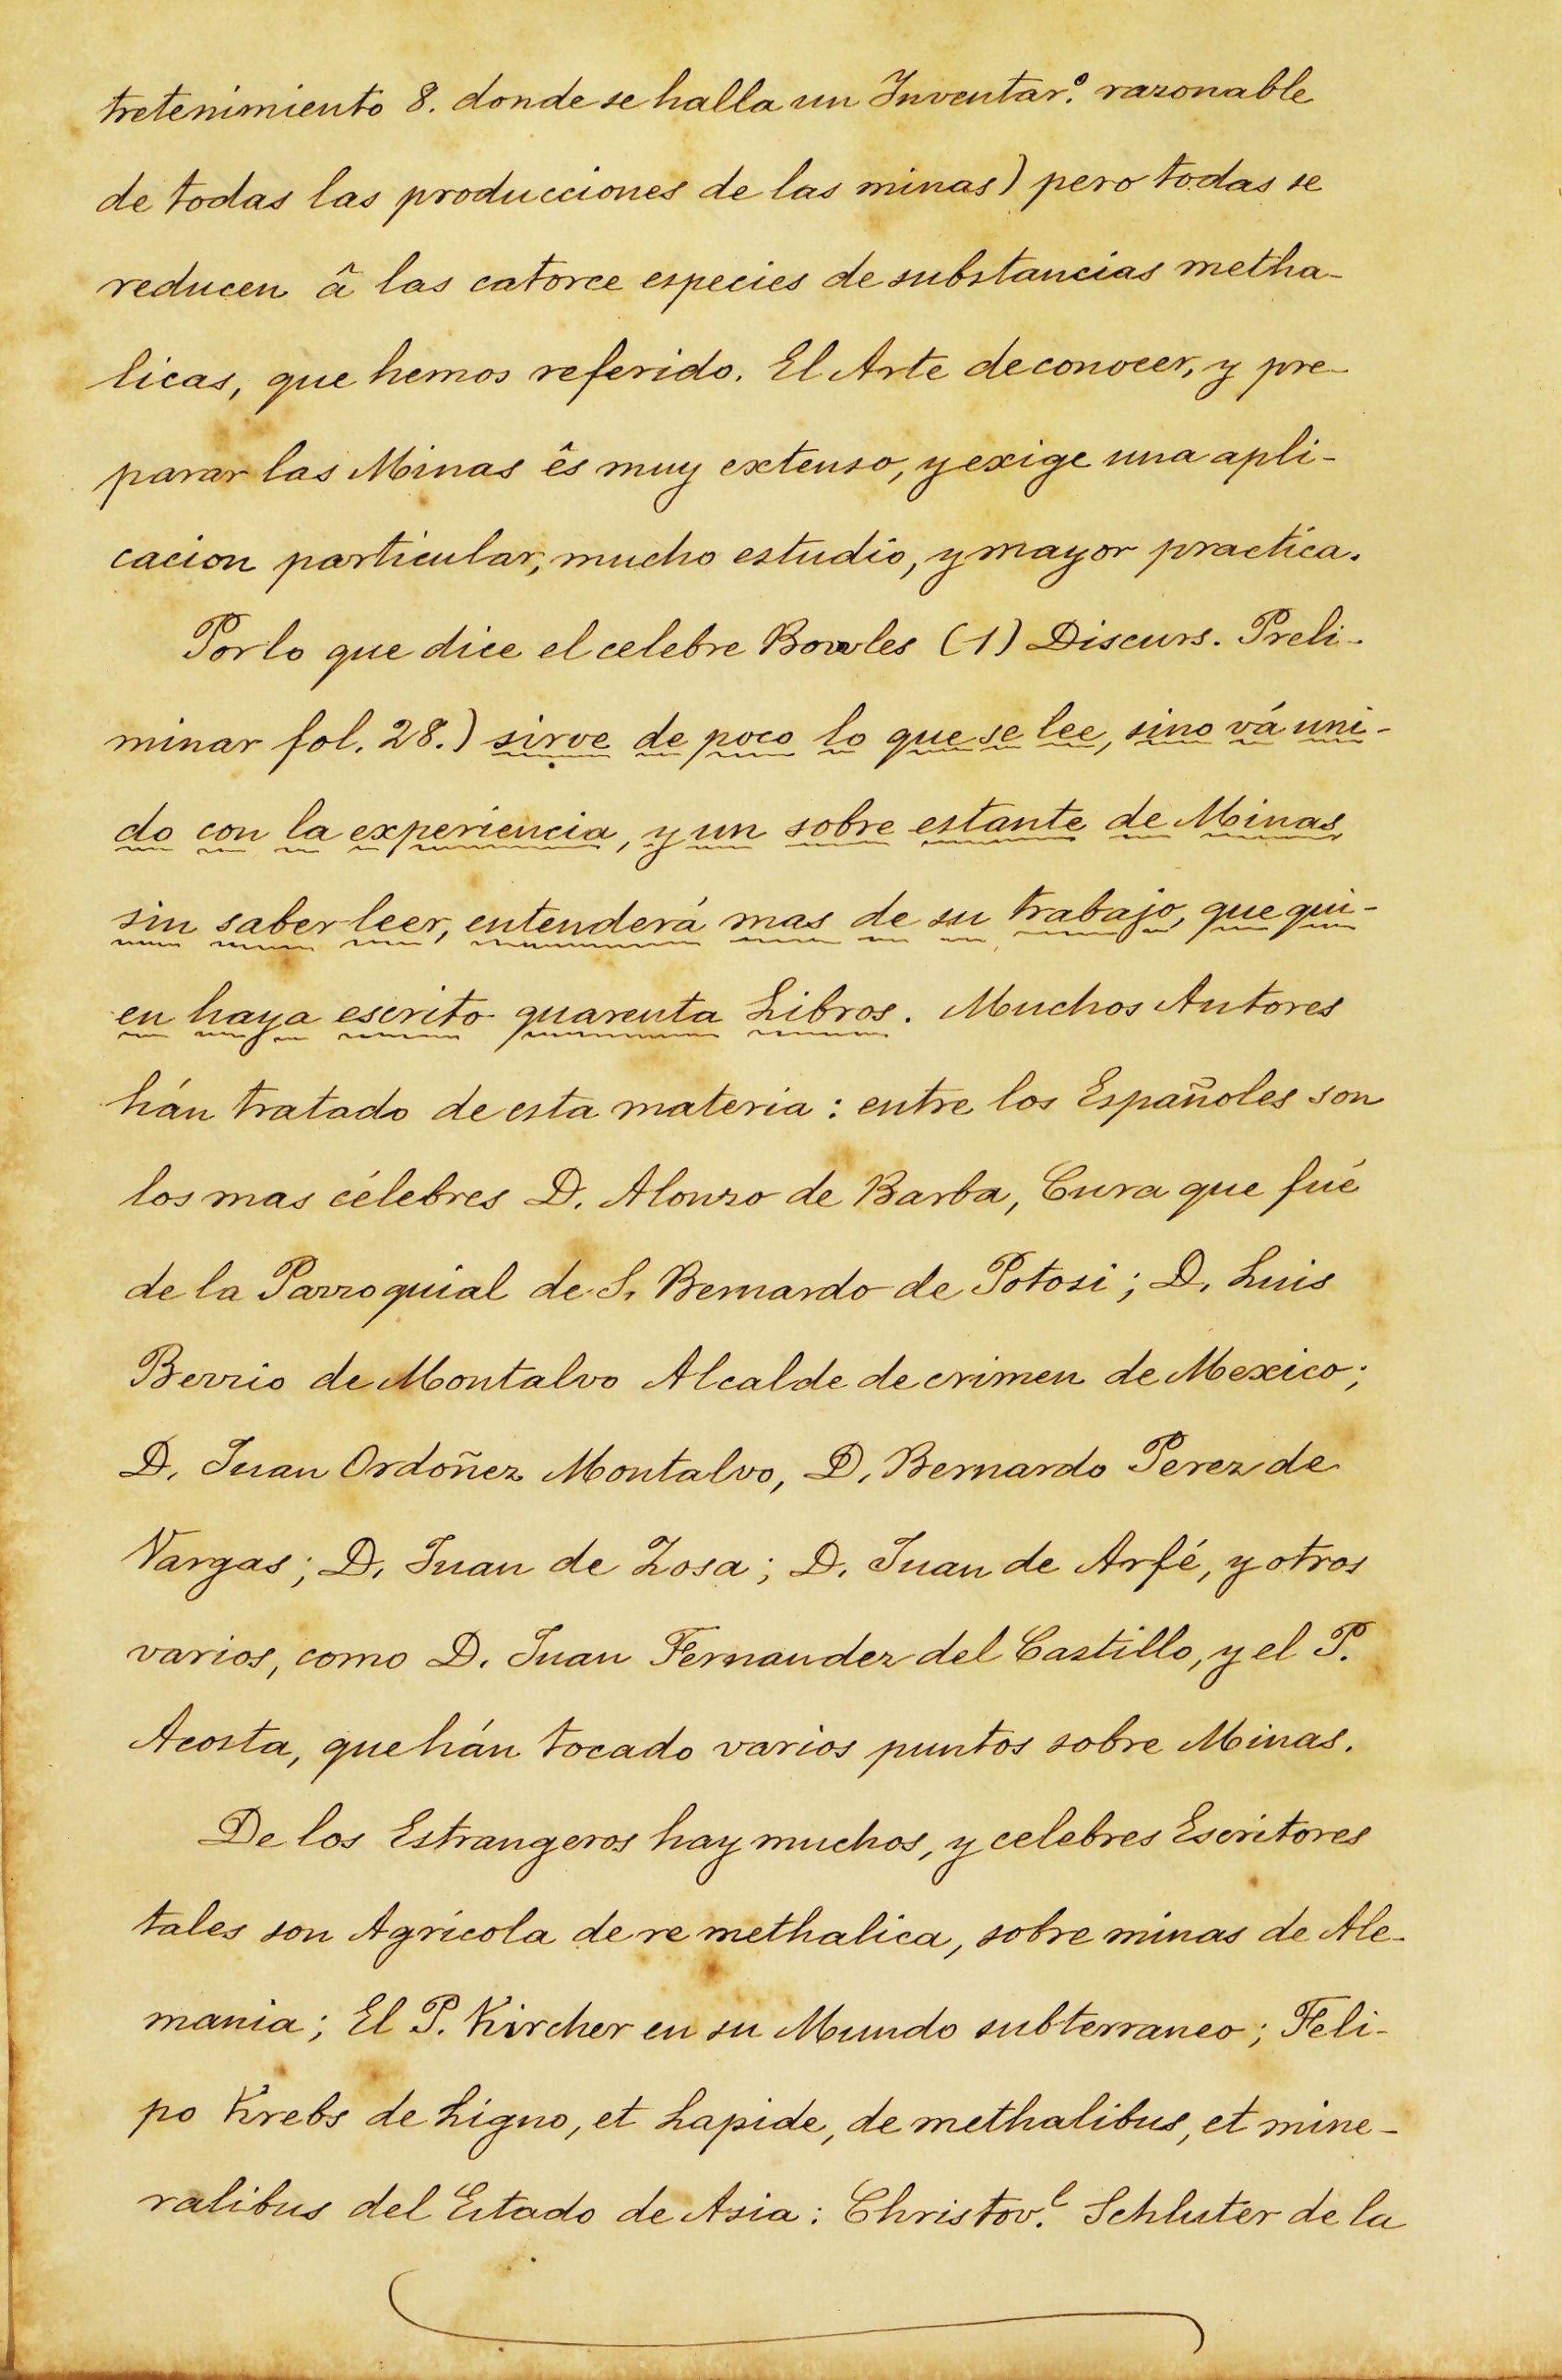 tretenimiento 8. donde se halla un Inventar.º razonable
de todas las producciones de las minas) pero todas se
reducen â las catorce especies de substancias metha-
licas, que hemos referido. El Arte de conocer, y pre-
parar las Minas ês muy extenso, y exige una apli-
cacion particular, mucho estudio, y mayor practica.
Por lo que dice el celebre Bowles (1) Discurs. Preli-
minar fol. 28.) sirve de poco lo que se lee, sino vá uni-
do con la experiencia, y un sobre estante de Minas
sin saber leer, entenderá mas de su trabajo, que qui-
en haya escrito quarenta Libros. Muchos Autores
hán tratado de esta materia: entre los Españoles son
los mas célebres D. Alonzo de Barba, Cura que fué
de la Parroquial de S. Bernardo de Potosi; D. Luis
Berrio de Montalvo Alcalde de crimen de Mexico;
D. Juan Ordoñez Montalvo, D. Bernardo Perez de
Vargas; D. Juan de Losa; D. Juan de Arfé, y otros
varios, como D. Juan Fernandez del Castillo, y el P.
Acosta, que hán tocado varios puntos sobre Minas.
De los Estrangeros hay muchos, y celebres Escritores
tales son Agricola de re methalica, sobre minas de Ale-
mania; El P. Kircher en su Mundo subterraneo; Feli-
po Krebs de Ligno, et Lapide, de methalibus, et mine-
ralibus del Estado de Asia: Christov.l Schluter de la